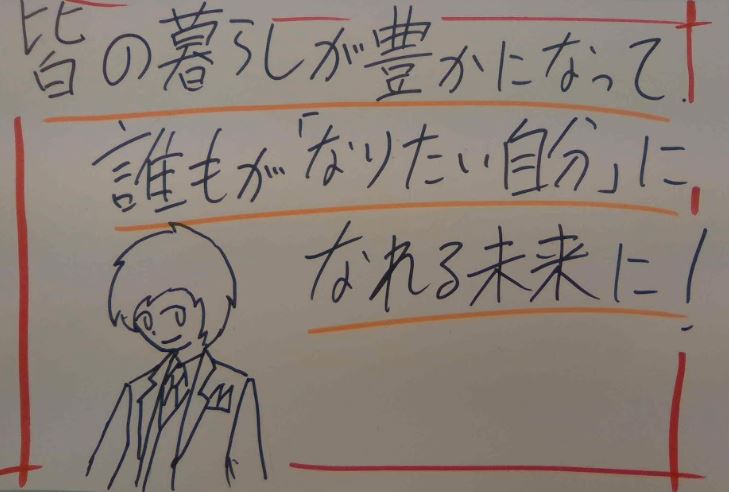 皆の暮らしが豊かになって
誰もが「なりたい自分」に
なれる未来に!